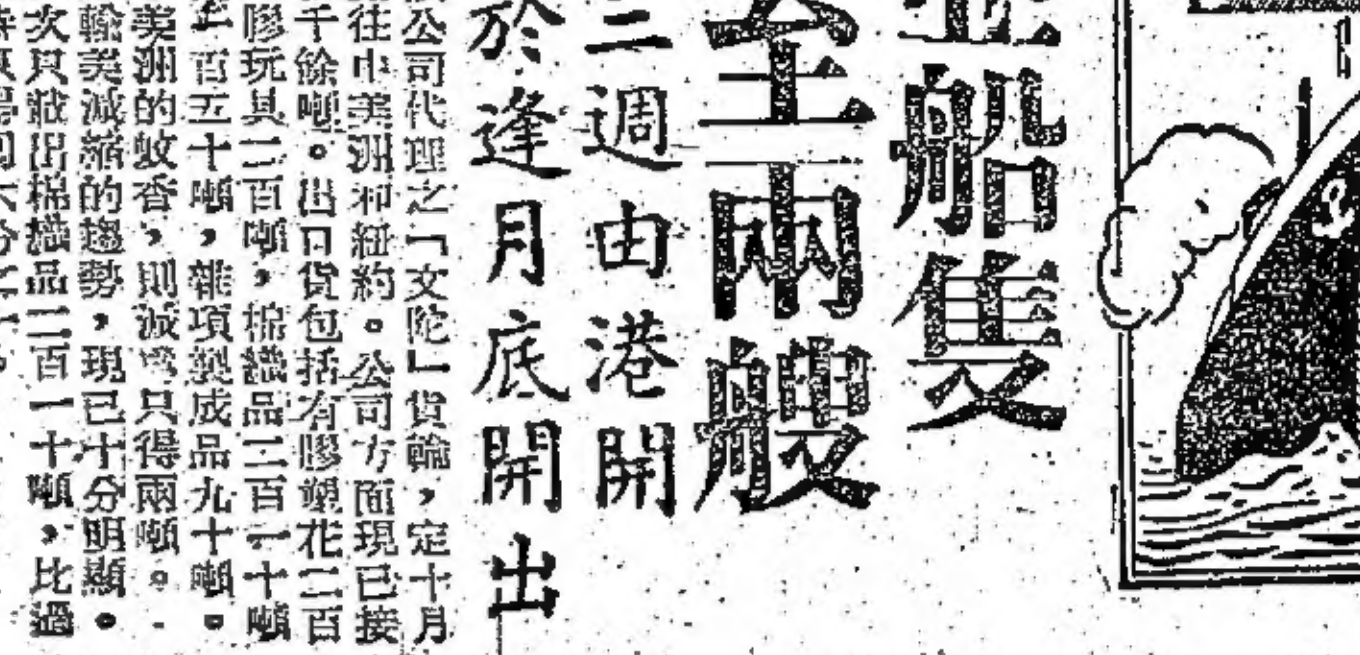 船隻
至兩艘
三週由港開
於逢月底開出
公司代理之「文陀」貨輪，定十月
往中美洲和紐約。公司方面現已接
千餘噸。出口貨包括有膠塑花二百
膠玩具二百噸，棉織品二百一十噸
百五十噸，雜項製成品九十噸。
美洲的蚊香，則減爲只得兩噸。
輸美減縮的趨勢，現已十分明顯。
次只載出棉織品二百一十噸，比過